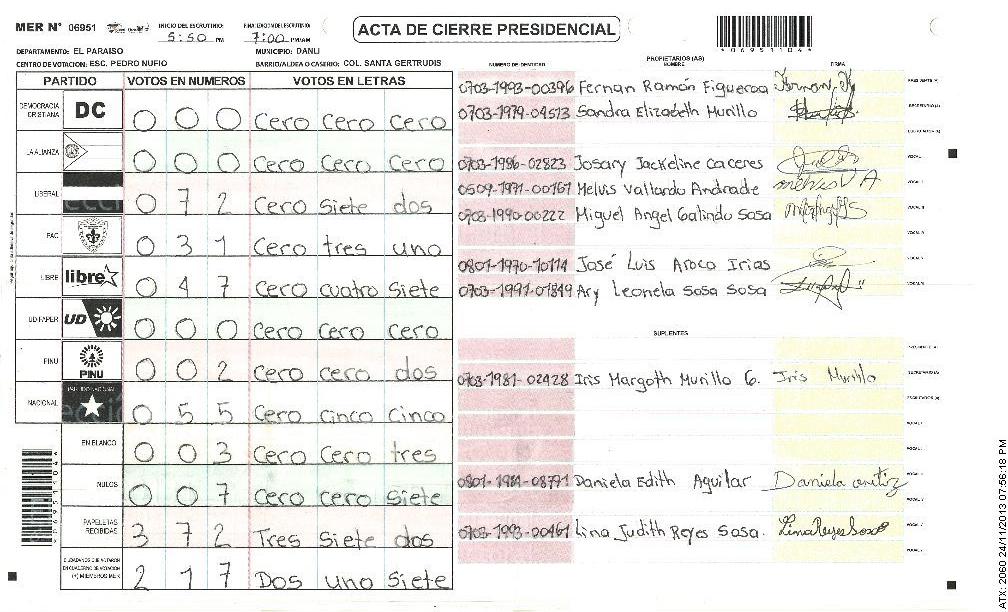 MER N° 06951
INICIO DEL ESCRUTINIO:
5:50 PM
FINALIZACION DEL ESCRUTINIO:
7:00 PM/AM
ACTA DE CIERRE PRESIDENCIAL
DEPARTAMENTO: EL PARAISO
MUNICIPIO: DANLI
CENTRO DE VOTACION: ESC. PEDRO NUFIO
BARRIO/ALDEA O CASERIO: COL. SANTA GERTRUDIS
PARTIDO VOTOS EN NUMEROS VOTOS EN LETRAS
DEMOCRACIA CRISTIANA DC 0 0 0 Cero Cero Cero
LA ALIANZA 0 0 0 Cero Cero Cero
LIBERAL 0 7 2 Cero Siete dos
PAC 0 3 1 Cero tres uno
LIBRE libre 0 4 7 Cero cuatro Siete
UD FAPER UD 0 0 0 Cero Cero Cero
PINU PINU 0 0 2 Cero Cero dos
NACIONAL PARTIDO NACIONAL 0 5 5 Cero Cinco Cinco
EN BLANCO 0 0 3 Cero Cero tres
NULOS 0 0 7 Cero Cero Siete
PAPELETAS RECIBIDAS 3 7 2 Tres Siete dos
CIUDADANOS QUE VOTARON EN CUADERNO DE VOTACION (+) MIEMBROS MER 2 1 7 Dos uno Siete
PROPIETARIOS (AS)
NUMERO DE IDENTIDAD NOMBRE FIRMA
0703-1993-00396 Fernan Ramón Figueroa
0703-1979-04513 Sandra Elizabeth Murillo
0703-1986-02823 Josary Jackeline Caceres
0509-1971-00161 Melvis Vallardo Andrade melvis V A
0703-1990-00222 Miguel Angel Galindo Sosa
0801-1970-10114 José Luis Aroca Irias
0703-1991-01819 Ary Leonela Sosa Sosa
SUPLENTES
0703-1981-02428 Iris Margoth Murillo G. Iris Murillo
0801-1981-08791 Daniela Edith Aguilar Daniela
0703-1993-00461 Lina Judith Reyes Sosa. Lina Reyes Sosa
ATX: 2060 24/11/2013 07:56:18 PM